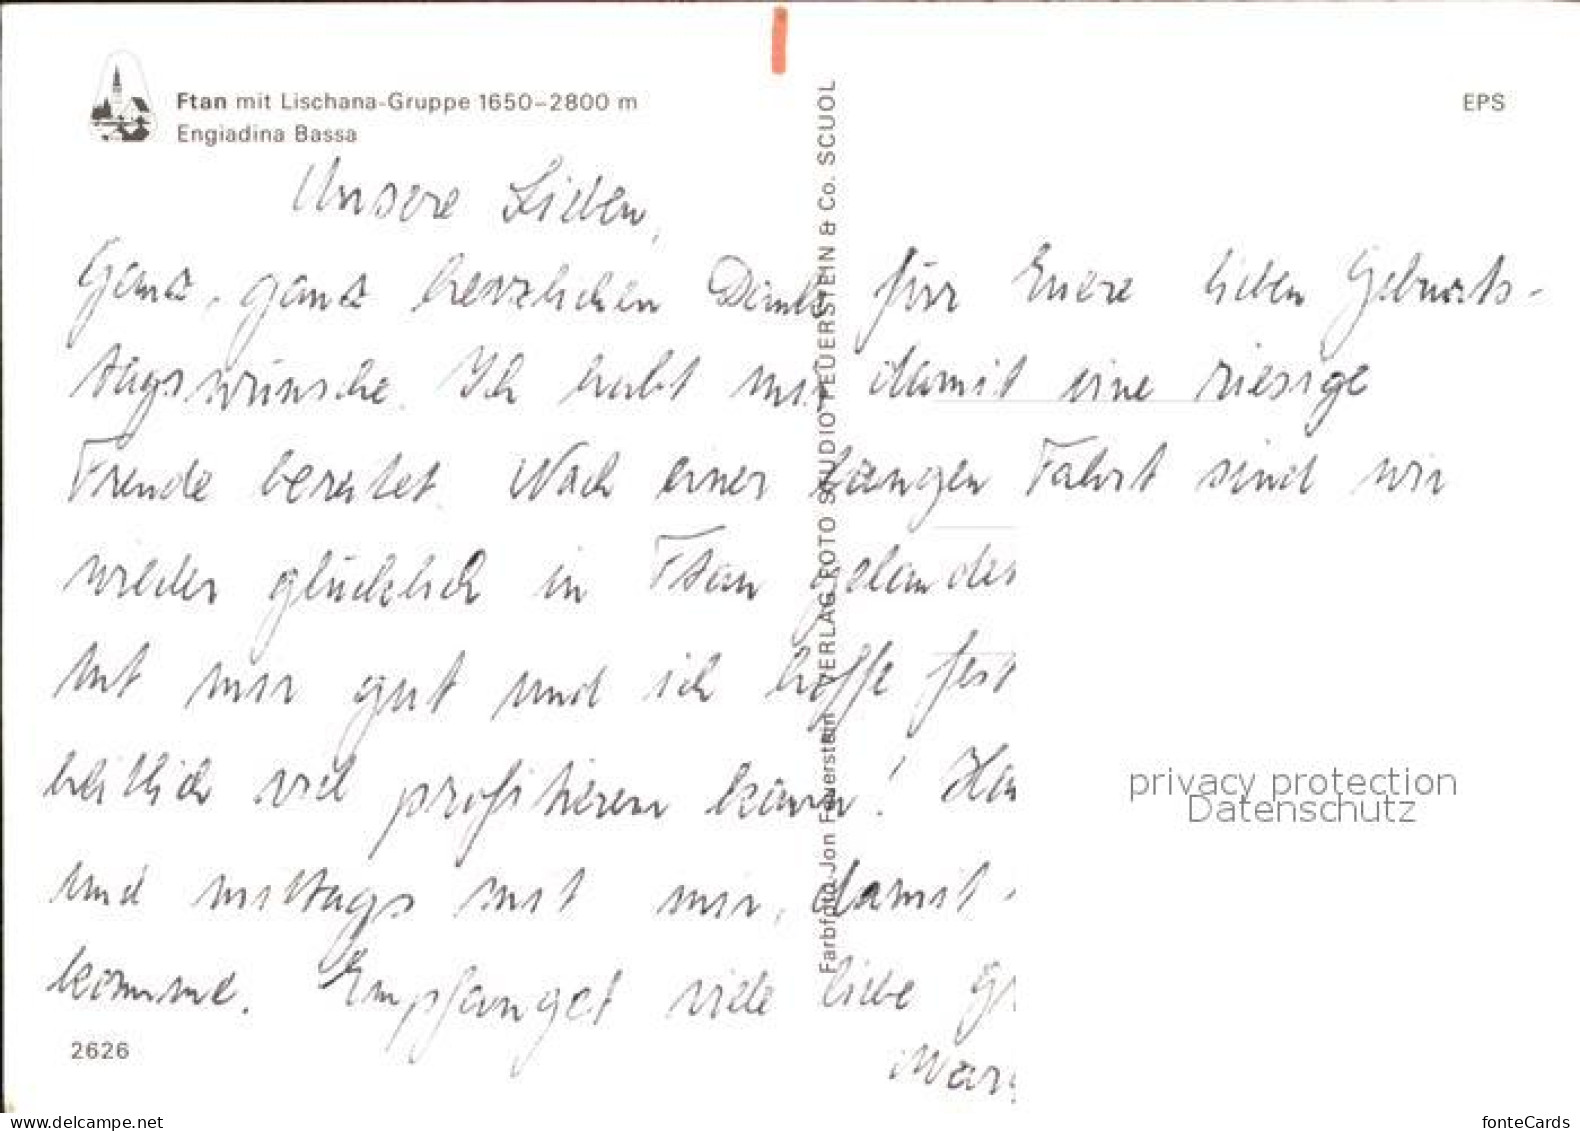 Ftan mit Lischana-Gruppe 1650–2800 m
Engiadina Bassa
EPS
Unsere Lieben,
Ganz, ganz herzlichen Dank für Euere lieben Geburts-
tagswünsche. Ihr habt mir damit eine riesige
Freude bereitet. Nach einer langen Fahrt sind wir
wieder glücklich in Ftan gelandet
tut mir gut und ich hoffe fest
heitlich viel profitieren kann!
und mittags mit mir, damit
komme. Empfanget viele liebe
2626
Farbfoto Jon Feuerstein VERLAG FOTO STUDIO FEUERSTEIN & Co. SCUOL
privacy protection
Datenschutz
www.delcampe.net
fonteCards